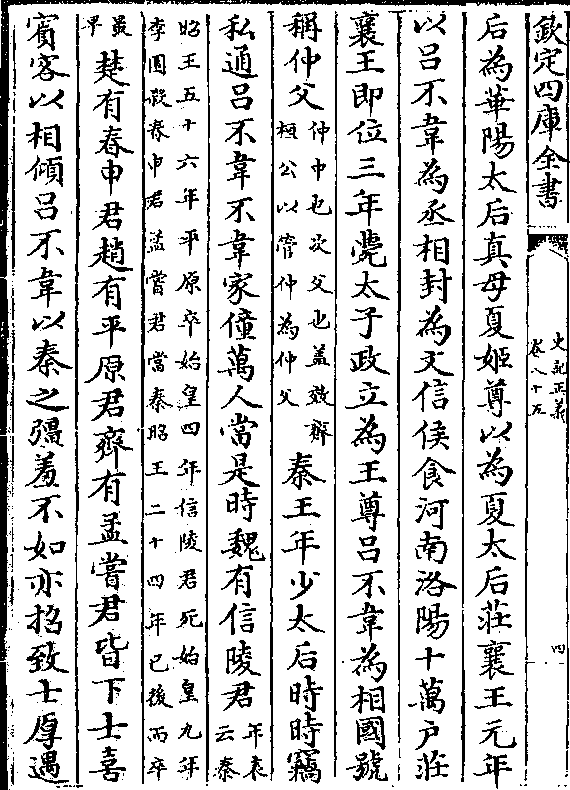 欽定四庫全書
史記正義
卷八十五
四
后為華陽太后真母夏姬尊以為夏太后莊襄王元年
以吕不韋為丞相封為文信侯食河南洛陽十萬户莊
襄王即位三年薨太子政立為王尊吕不韋為相國號
稱仲父仲中也次父也蓋效齊桓公以管仲為仲父秦王年少太后時時竊
私通吕不韋不韋家僮萬人當是時魏有信陵君年表云秦
昭王五十六年平原卒始皇四年信陵君死始皇九年李園殺春申君孟嘗君當秦昭王二十四年已後而卒
最早楚有春申君趙有平原君齊有孟嘗君皆下士喜
賓客以相傾吕不韋以秦之彊羞不如亦招致士厚遇